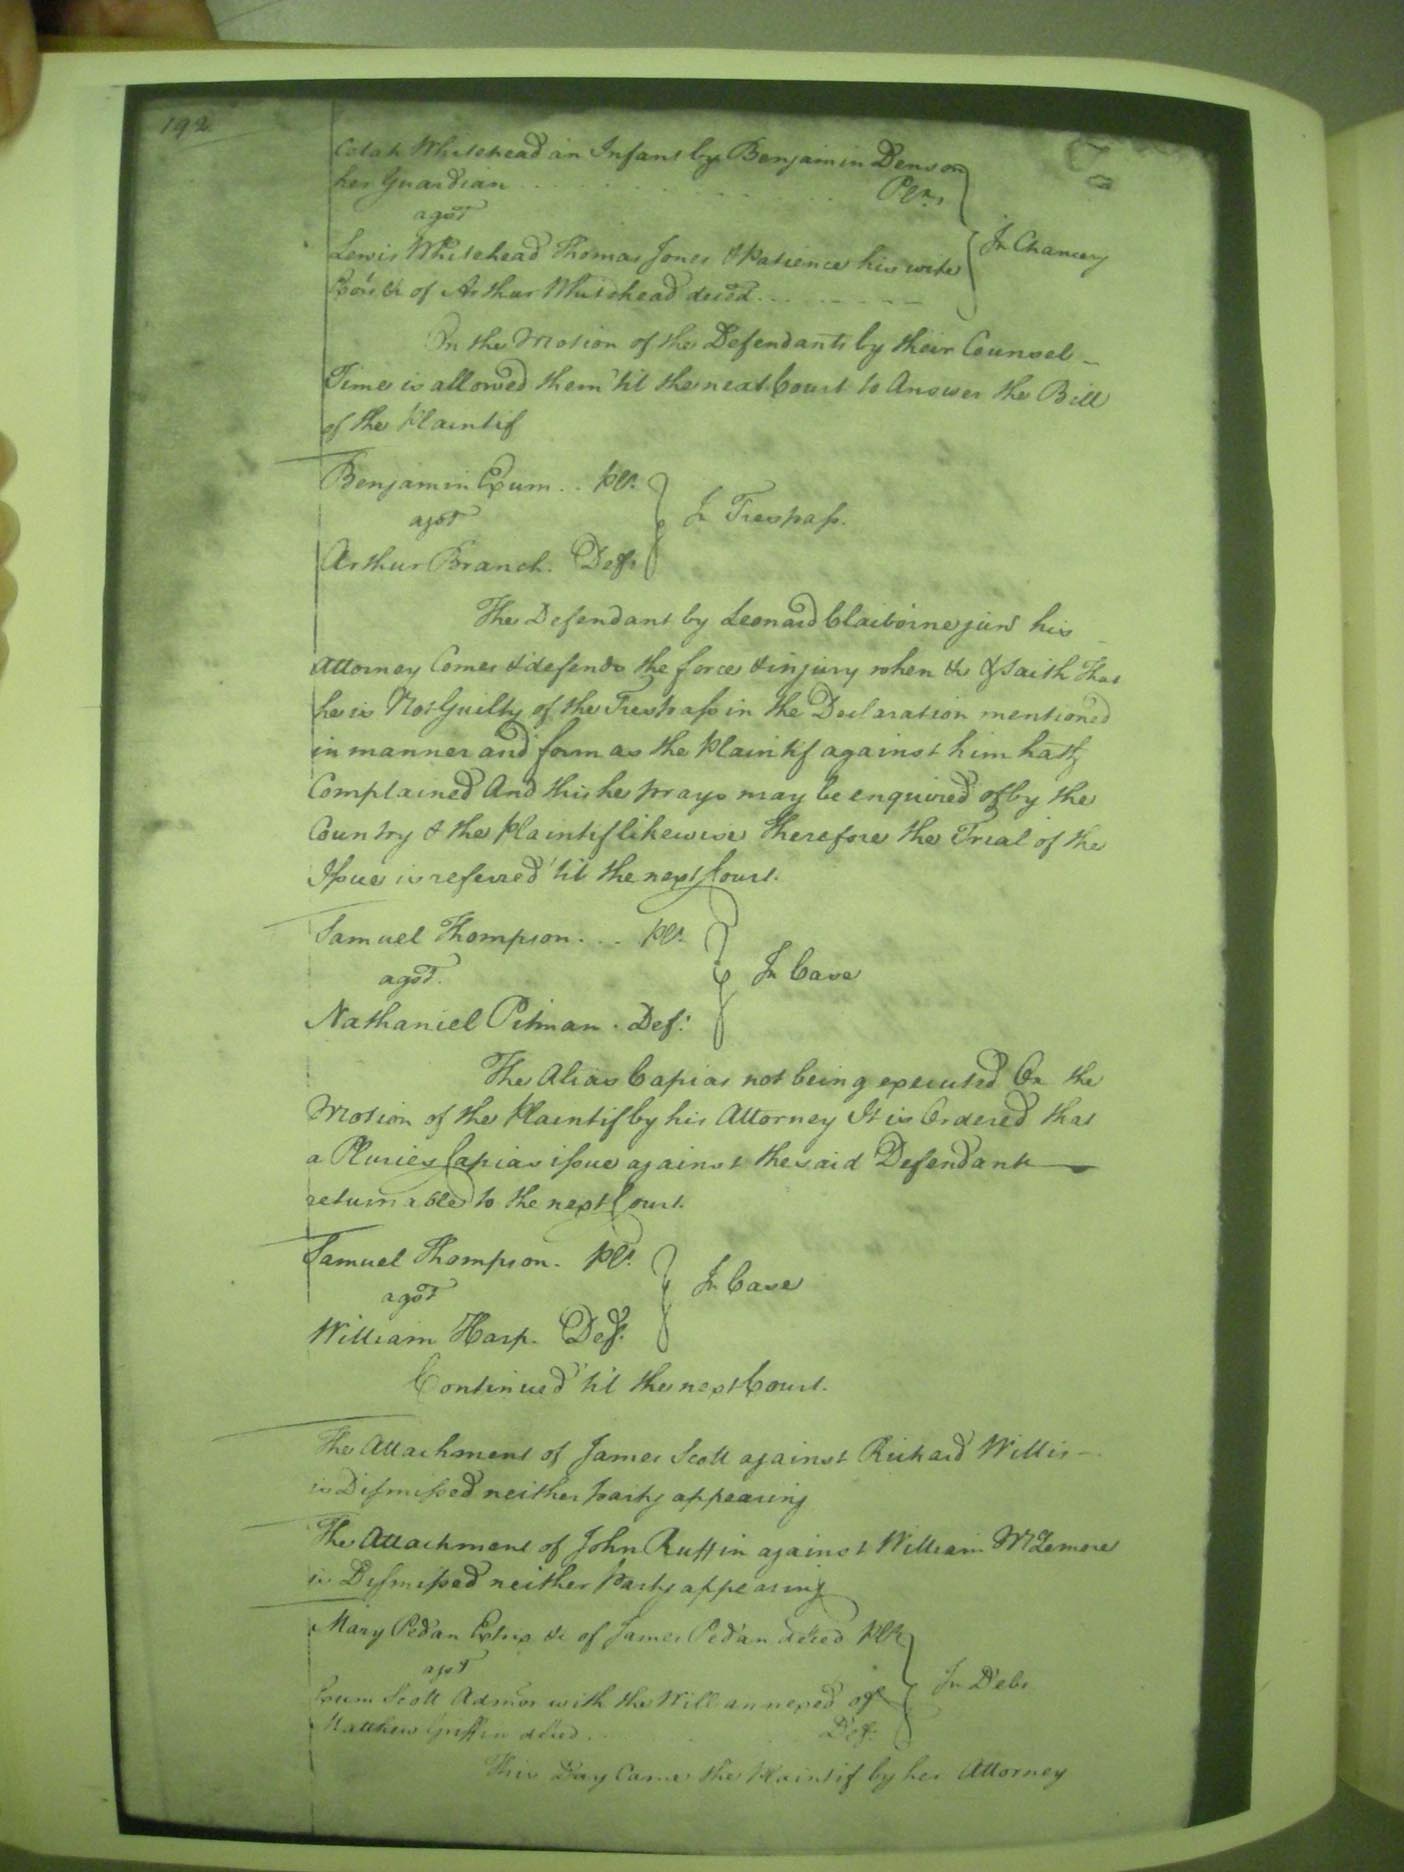 192
Celah Whitehead an Infant by Benjamin Denson
her Guardian . . . . . . . . Plt.
agst
Lewis Whitehead Thomas Jones & Patience his wife
of Arthur Whitehead deced. . . . .
In Chancery
On the Motion of the Defendants by their Counsel –
Time is allowed them 'til the next Court to Answer the Bill
of the Plaintif
Benjamin Exum . . Plt.
agst
In Trespass.
Arthur Branch. Deft.
The Defendant by Leonard Claiborne junr. his
Attorney Comes & defends the force & injury when &c & Saith That
he is Not Guilty of the Trespass in the Declaration mentioned
in manner and form as the Plaintif against him hath
Complained And this he prays may be enquired of by the
Country & the Plaintif likewise Therefore the Trial of the
Issue is referred 'til the next Court.
Samuel Thompson . . . Plt.
agst.
In Case
Nathaniel Pitman . Deft.
The Alias Capias not being executed On the
Motion of the Plaintif by his Attorney It is Ordered that
a Pluries Capias issue against the said Defendant
returnable to the next Court.
Samuel Thompson. Plt.
agst
In Case
William Harp. Deft.
Continued 'til the next Court.
The Attachment of James Scott against Richard Willis –
is Dismissed neither party appearing
The Attachment of John Ruffin against William McLemore
is Dismissed neither Party appearing
Mary Pedan Extrx &c of James Pedan deced Plt
agst
In Debt
Exum Scott Admor with the Will annexed of
Matthew Griffin deced. . Deft.
This Day Came the Plaintif by her Attorney